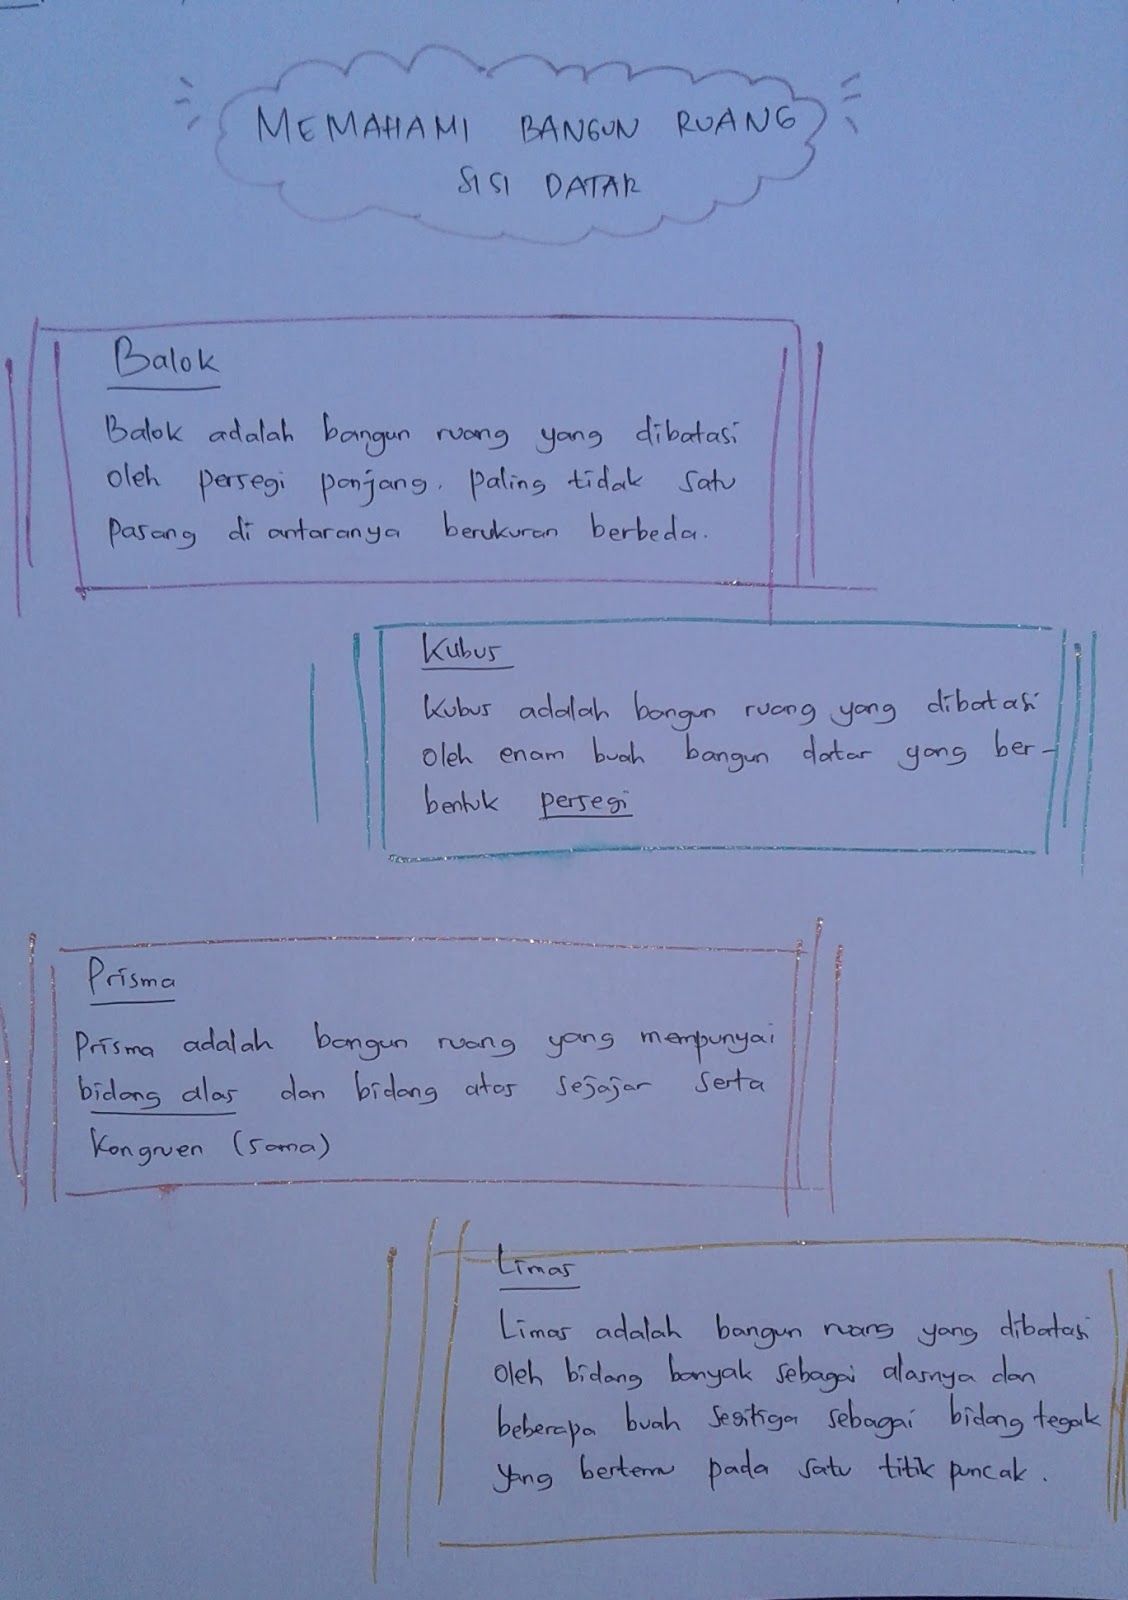 MEMAHAMI BANGUN RUANG
SISI DATAR
Balok
Balok adalah bangun ruang yang dibatasi
oleh persegi panjang, paling tidak satu
pasang di antaranya berukuran berbeda.
Kubus
Kubus adalah bangun ruang yang dibatasi
oleh enam buah bangun datar yang ber-
bentuk persegi
Prisma
Prisma adalah bangun ruang yang mempunyai
bidang alas dan bidang atas sejajar serta
kongruen (sama)
Limas
Limas adalah bangun ruang yang dibatasi
oleh bidang banyak sebagai alasnya dan
beberapa buah segitiga sebagai bidang tegak
yang bertemu pada satu titik puncak.